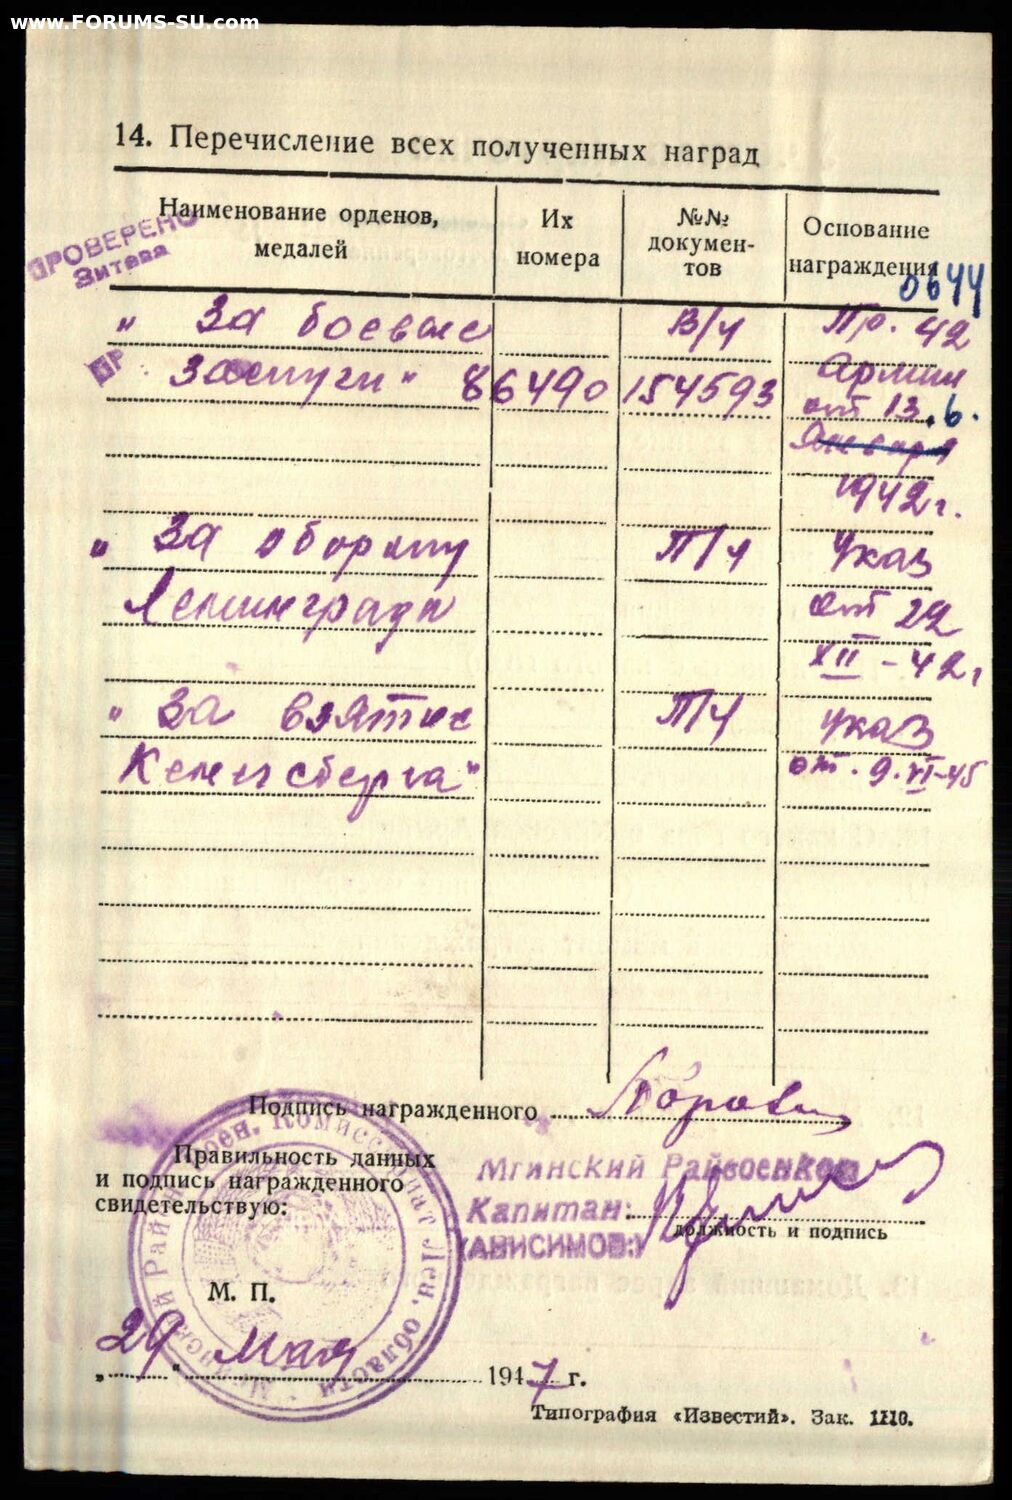 www.FORUMS-SU.com
14. Перечисление всех полученных наград
Наименование орденов, медалей
Их номера
№№ документов
Основание награждения
ПРОВЕРЕНО
0644
„ За боевые В/ч Пр. 42
ПР
заслуги“ 86490 154593 Армии
от 13.6.
Января
1942г.
„ За оборону П/ч Указ
Ленинграда от 22
XII - 42г
„ За взятие П/ч Указ
Кенигсберга“ от 9.VI-45
Подпись награжденного
Правильность данных
и подпись награжденного
свидетельствую:
Мгинский Райвоенком
Капитан:
(АНИСИМОВ:)
должность и подпись
М. П.
Мгинский Район. Воен. Комиссариат Лен. области
„29“ Мая 1947 г.
Типография «Известий». Зак. 1110.